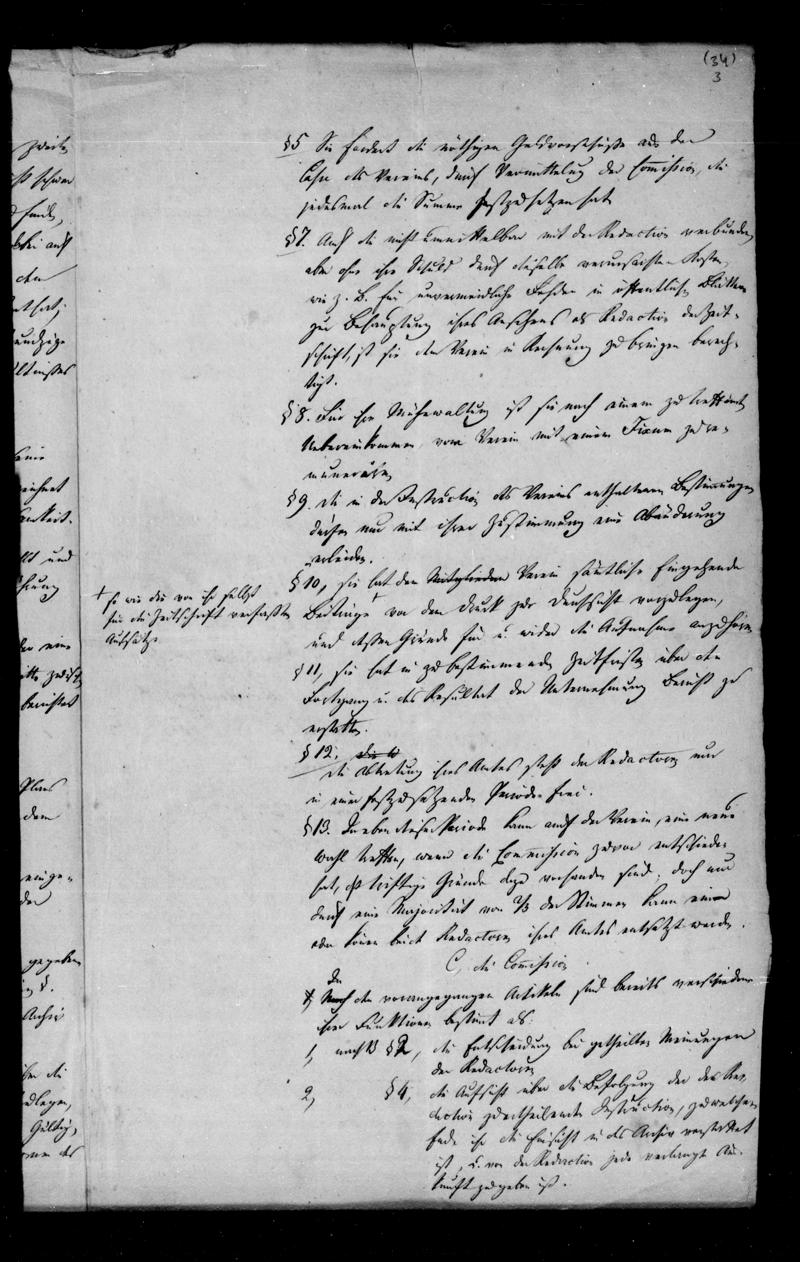 (34)
3
§5 Sie fordert die nöthigen Geldvorschüsse aus der
Casse des Vereins, durch Vermittelung der Commission, die
jedesmal die Summe festzusetzen hat
§7. Auch die nicht unmittelbar mit der Redaction verbundenen,
aber ohne ihre Schuld durch dieselbe verursachten Kosten,
wie z. B. für unvermeidliche Fehden in öffentlichen Blättern
zur Behauptung ihres Ansehens als Redaction der Zeit-
schrift, ist sie dem Verein in Rechnung zu bringen berech-
tigt.
§8. Für ihre Mühewaltung ist sie nach einem zu treffenden
Uebereinkommen vom Verein mit einem Fixum zu re-
muneriren
§9. die in der Instruction des Vereins enthaltenen Bestimmungen
dürfen nur mit ihrer Zustimmung eine Abänderung
erleiden.
§10, sie hat den Mitgliedern Verein sämtliche eingehende
Beiträge + vor dem Druck zur Durchsicht vorzulegen,
und dessen Gründe für u. wider die Aufnahme anzuhören
+ so wie die von ihr selbst
für die Zeitschrift verfaßten
Aufsätze
§11, sie hat in zu bestimmenden Zeitfristen über den
Fortgang u. das Resultat der Unternehmung Bericht zu
erstatten.
§12. die
die Abtretung ihres Amtes steht den Redactoren nur
in einer festzusetzenden Periode frei.
§13. In eben dieser Periode kann auch der Verein, eine neue
Wahl treffen, wenn die Commission zuvor entschieden
hat, daß triftige Gründe dazu vorhanden sind; doch nur
durch eine Majorität von 2/3 der Stimmen kann einer
oder können beide Redactoren ihres Amtes entsetzt werden.
C, die Commission
In
Nach den vorangegangenen Artikeln sind bereits verschiedene
ihrer Funktionen bestimt als:
1, nach B §2, die Entscheidung bei getheilten Meinungen
der Redactoren
2, §4, die Aufsicht über die Befolgung der der Re-
daction zu ertheilenden Instruction, zu welchem
Ende ihr die Einsicht in das Archiv verstattet
ist, u. von der Redaction jede verlangte Aus-
kunft zu geben ist.